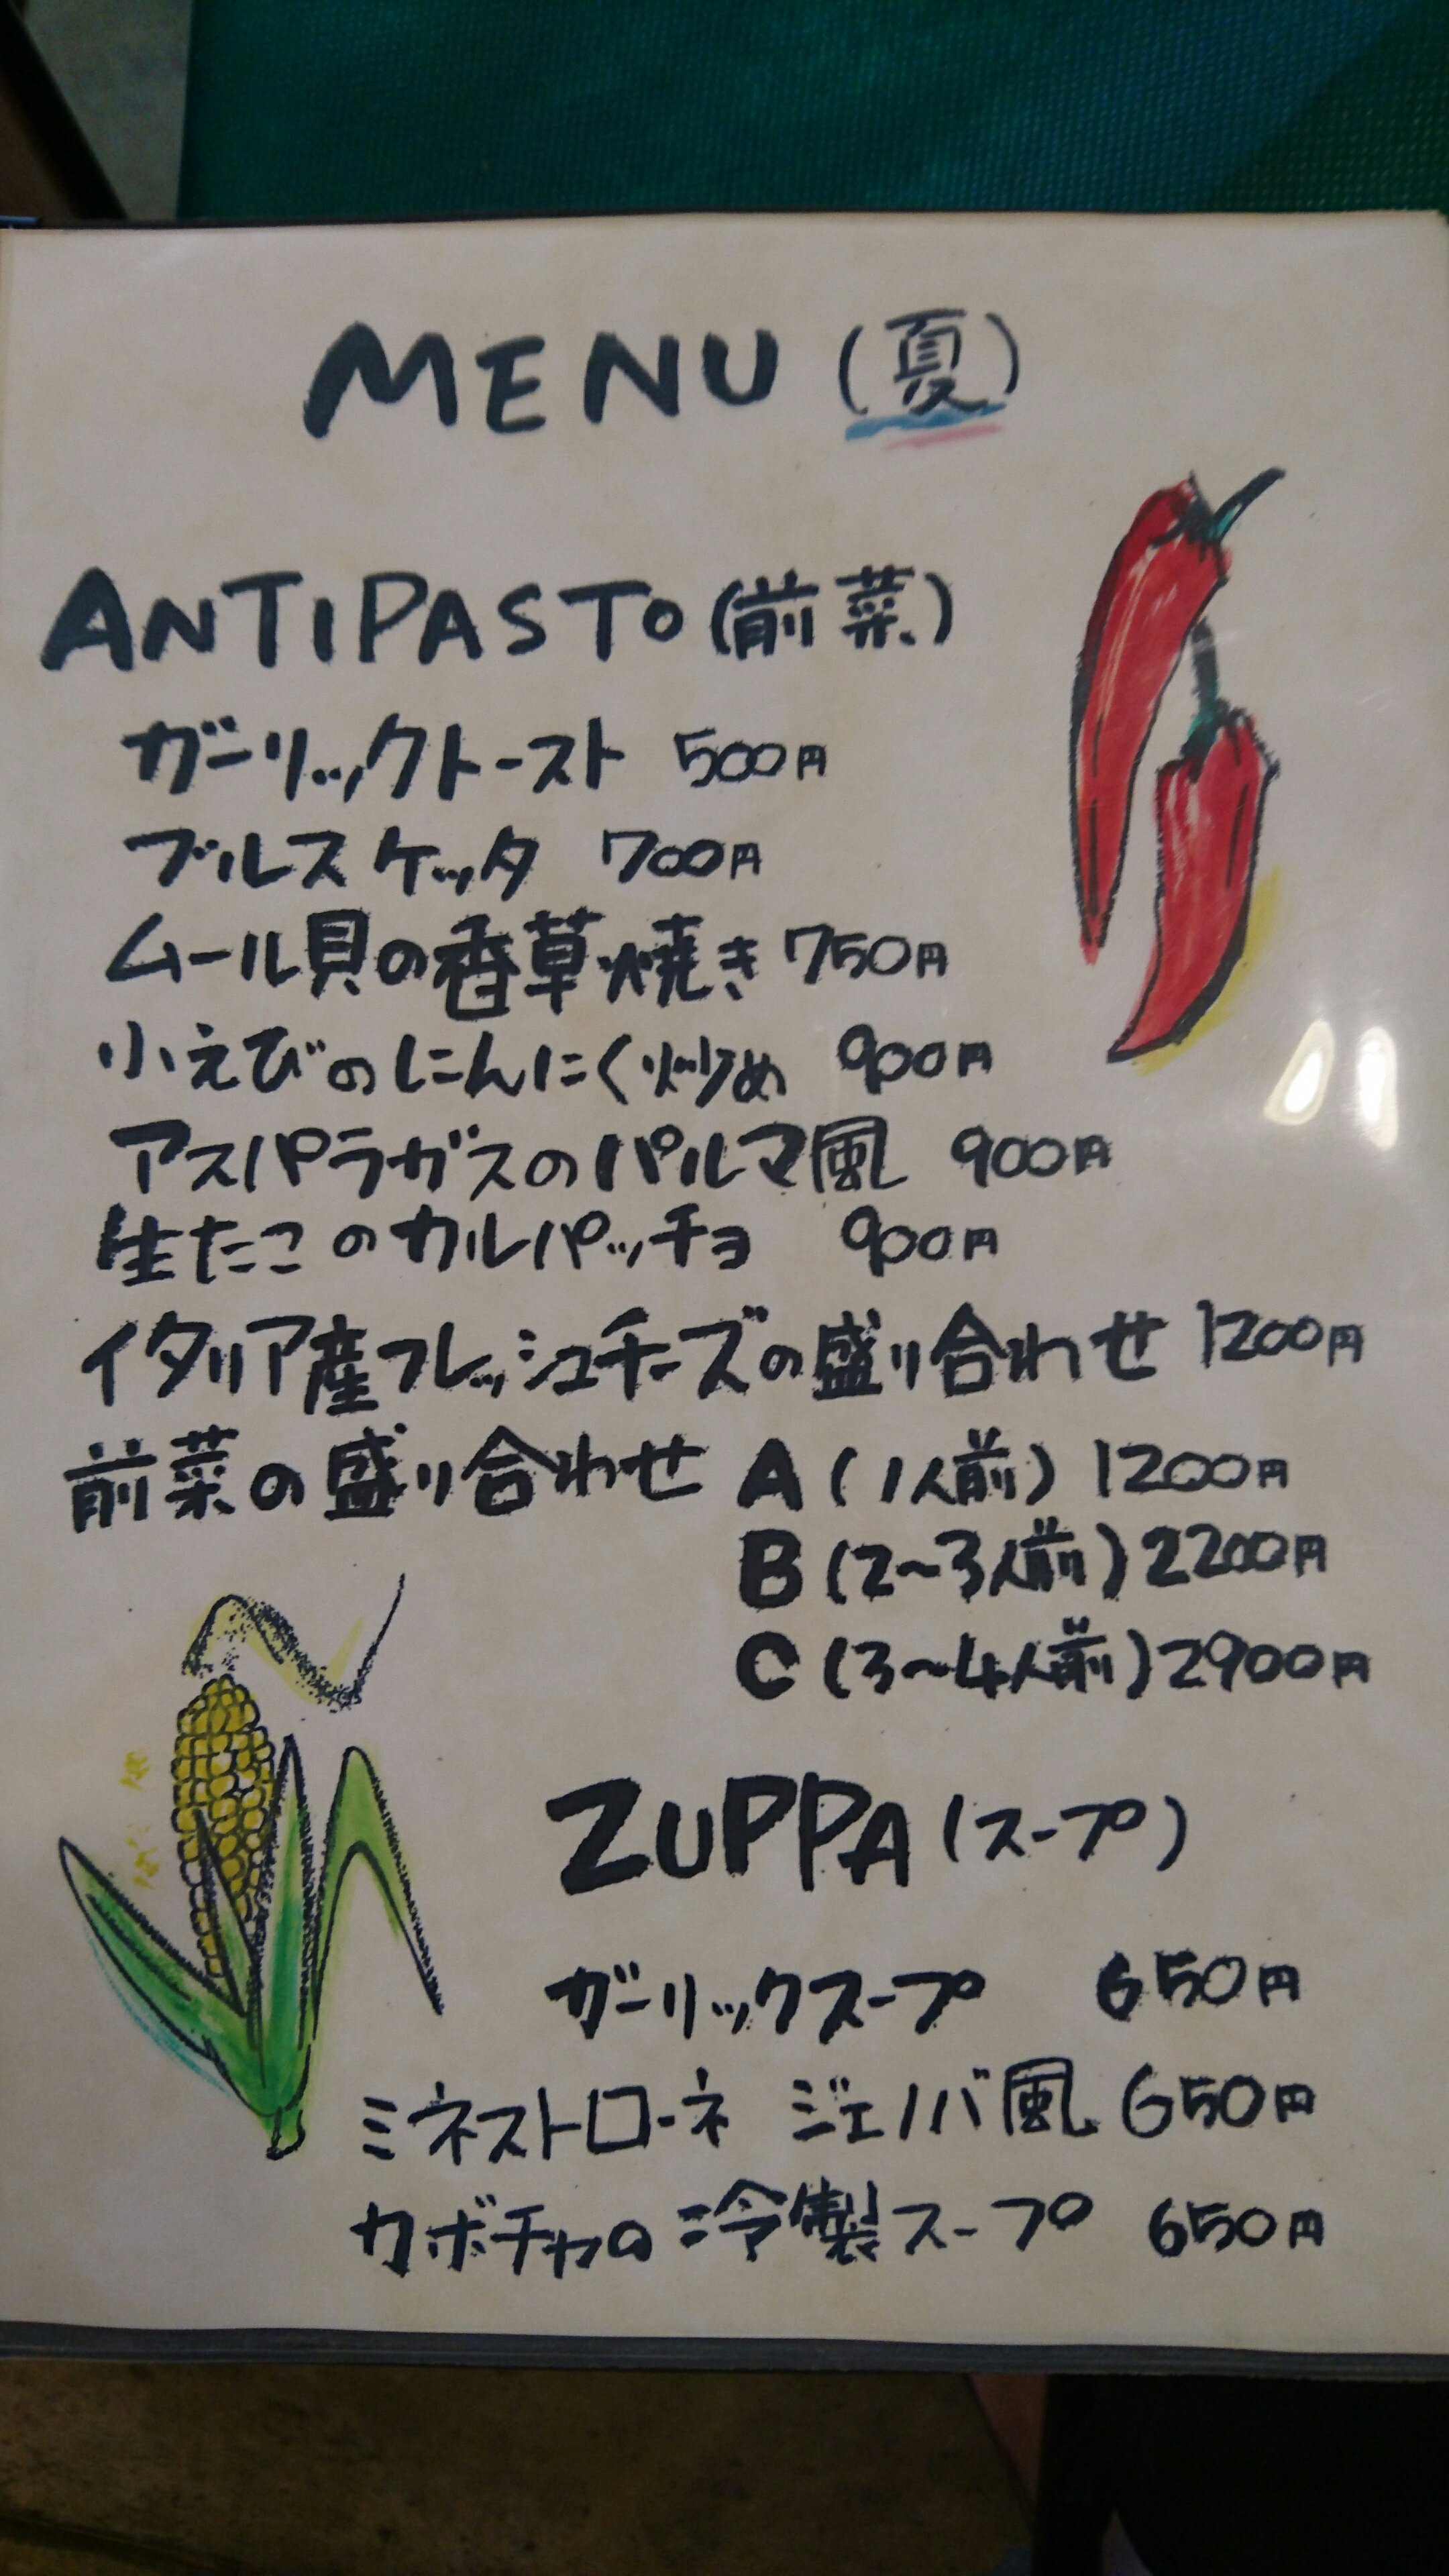 MENU (夏)
ANTIPASTO (前菜)
ガーリックトースト 500円
ブルスケッタ 700円
ムール貝の香草焼き 750円
小えびのにんにく炒め 900円
アスパラガスのパルマ風 900円
生たこのカルパッチョ 900円
イタリア産フレッシュチーズの盛り合わせ 1200円
前菜の盛り合わせ A (1人前) 1200円
B (2~3人前) 2200円
C (3~4人前) 2900円
ZUPPA (スープ)
ガーリックスープ 650円
ミネストローネ ジェノバ風 650円
カボチャの冷製スープ 650円